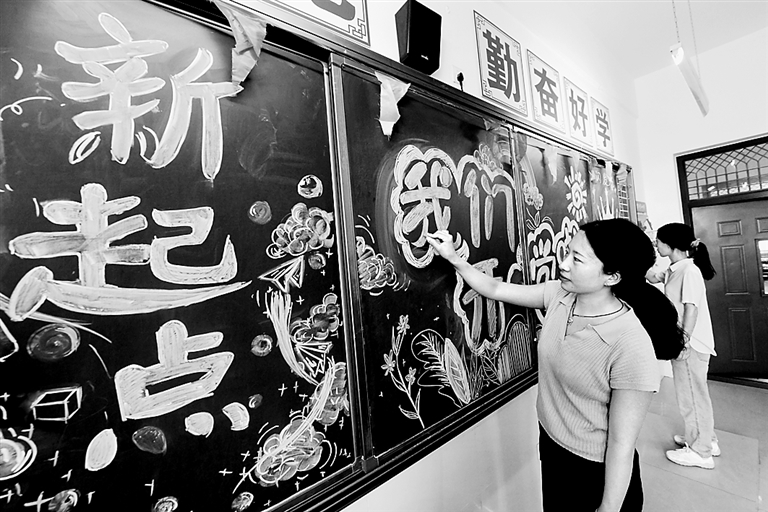 勤奋好学
新
起
点
我们
开学